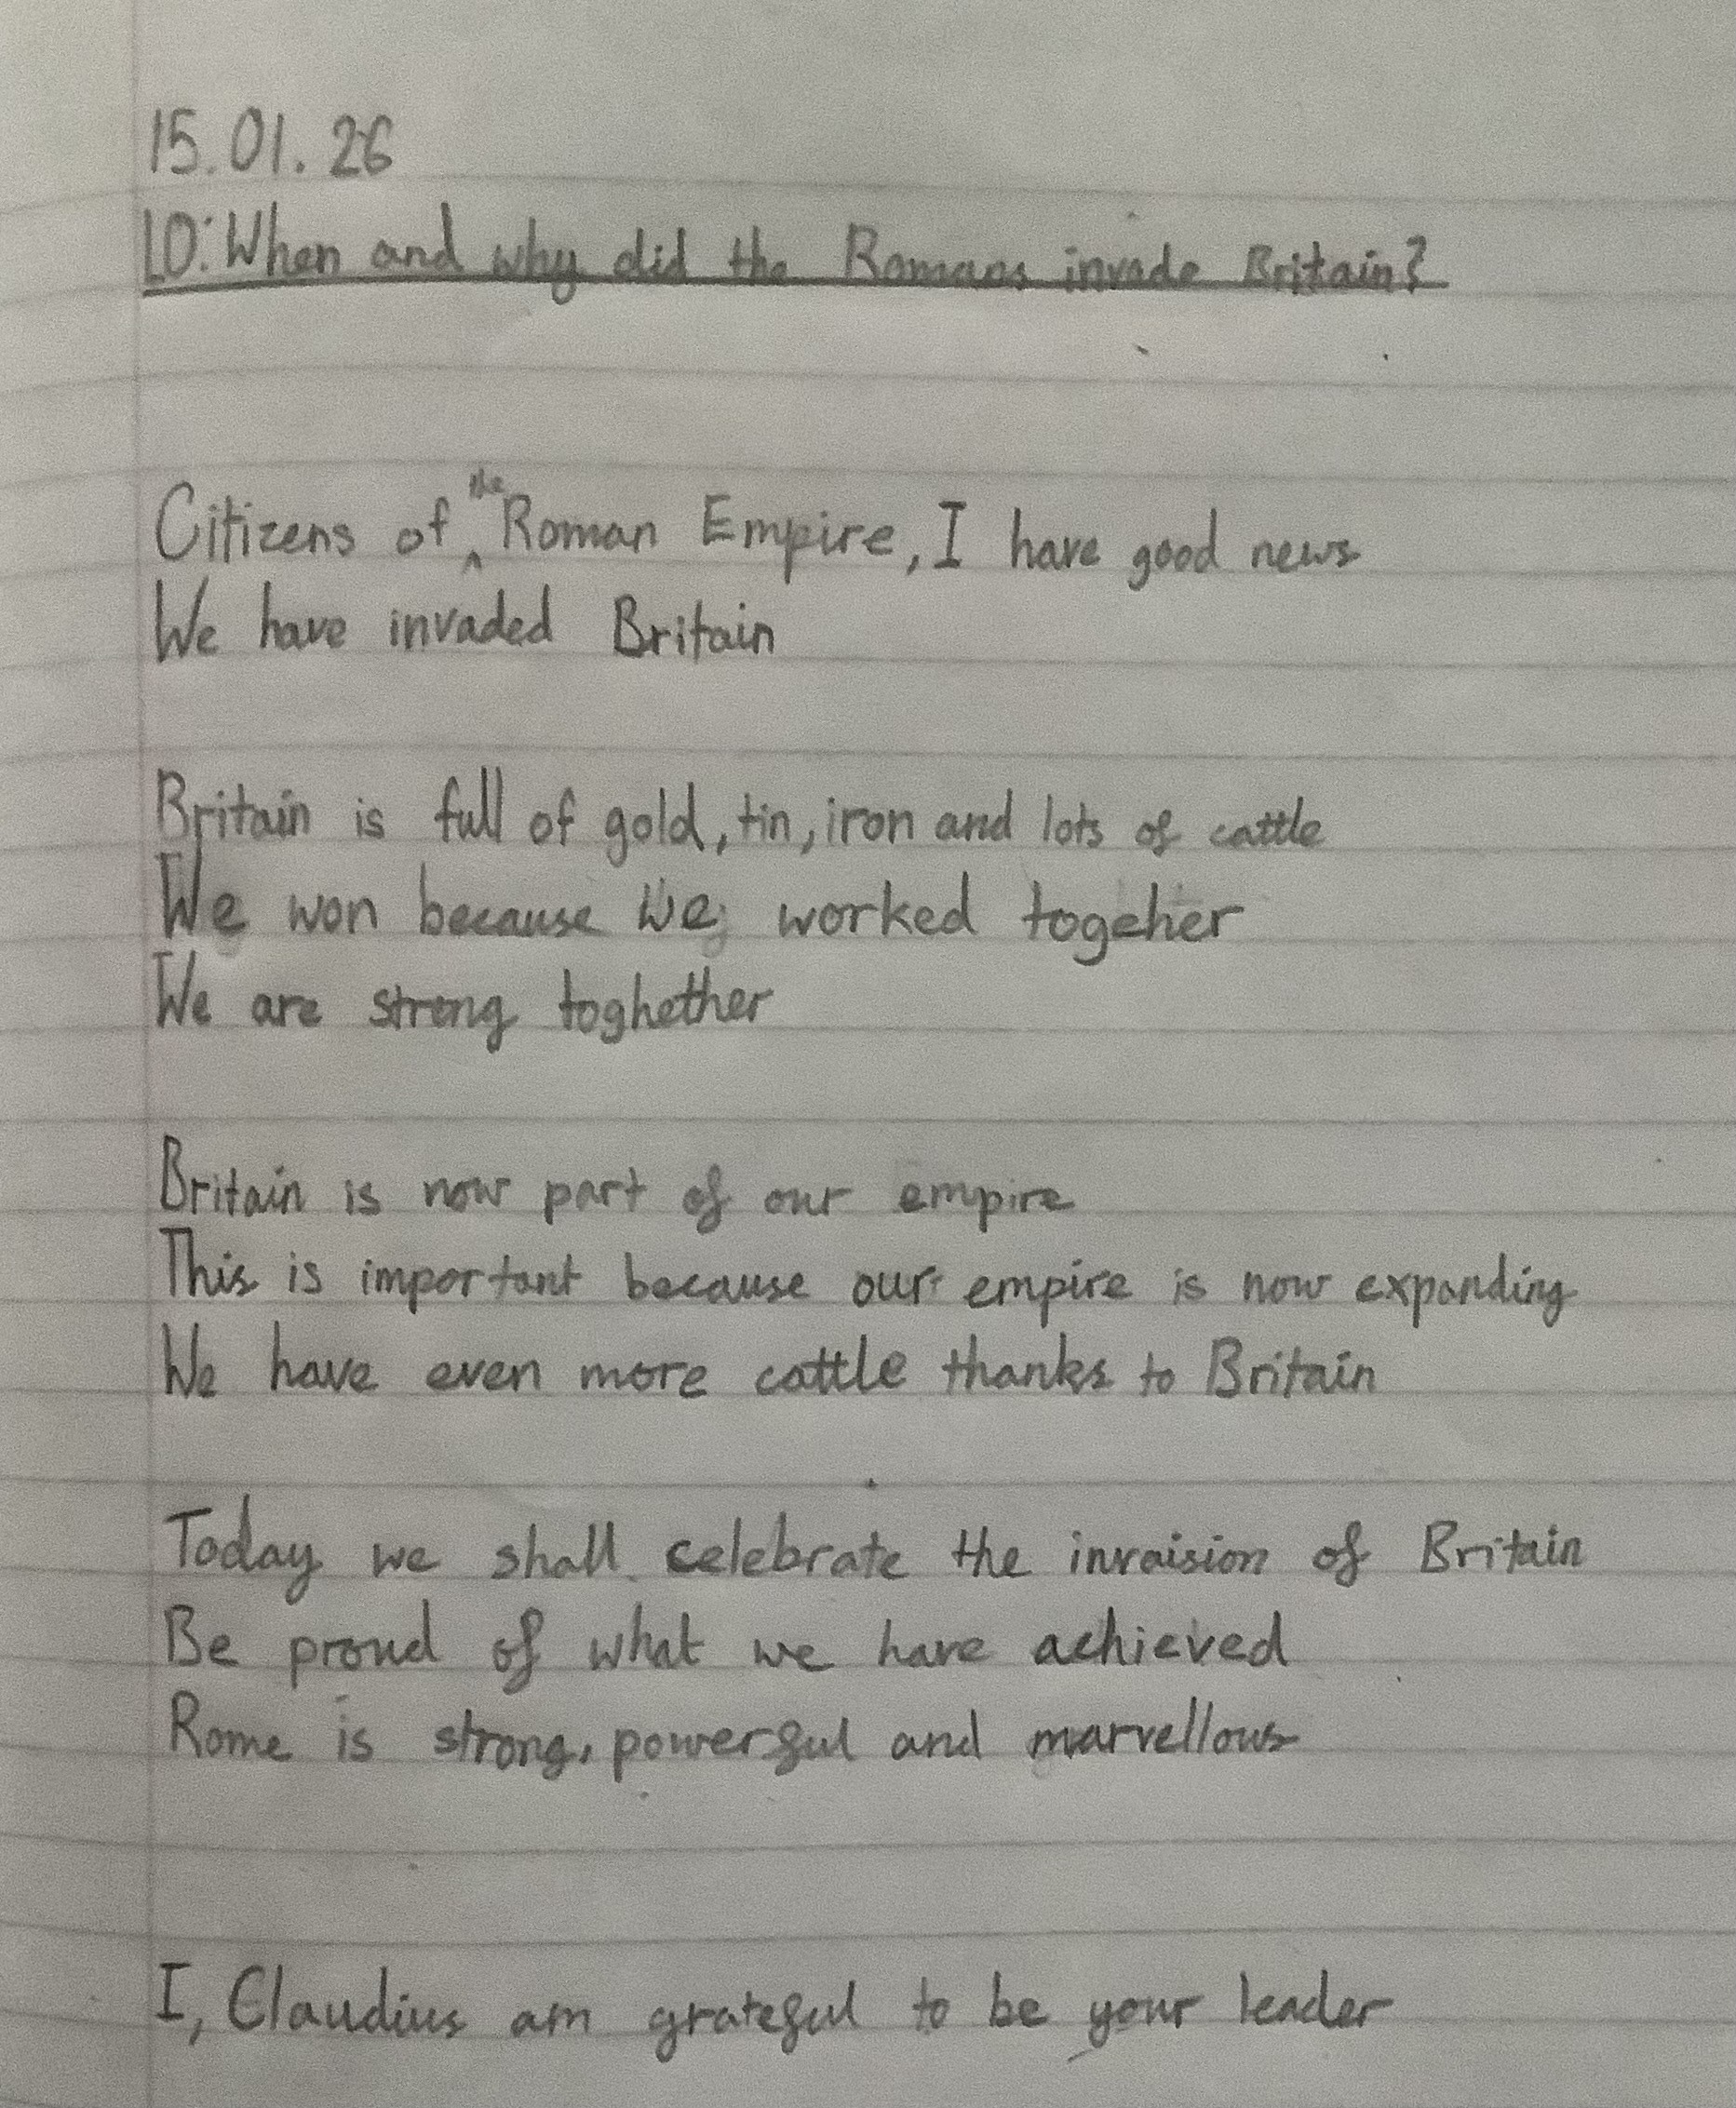 15.01.26
LO: When and why did the Romans invade Britain?
Citizens of the Roman Empire, I have good news
We have invaded Britain
Britain is full of gold, tin, iron and lots of cattle
We won because we worked togeher
We are strong toghether
Britain is now part of our empire
This is important because our empire is now expanding
We have even more cattle thanks to Britain
Today we shall celebrate the invaision of Britain
Be proud of what we have achieved
Rome is strong, powerful and marvellous
I, Claudius am grateful to be your leader